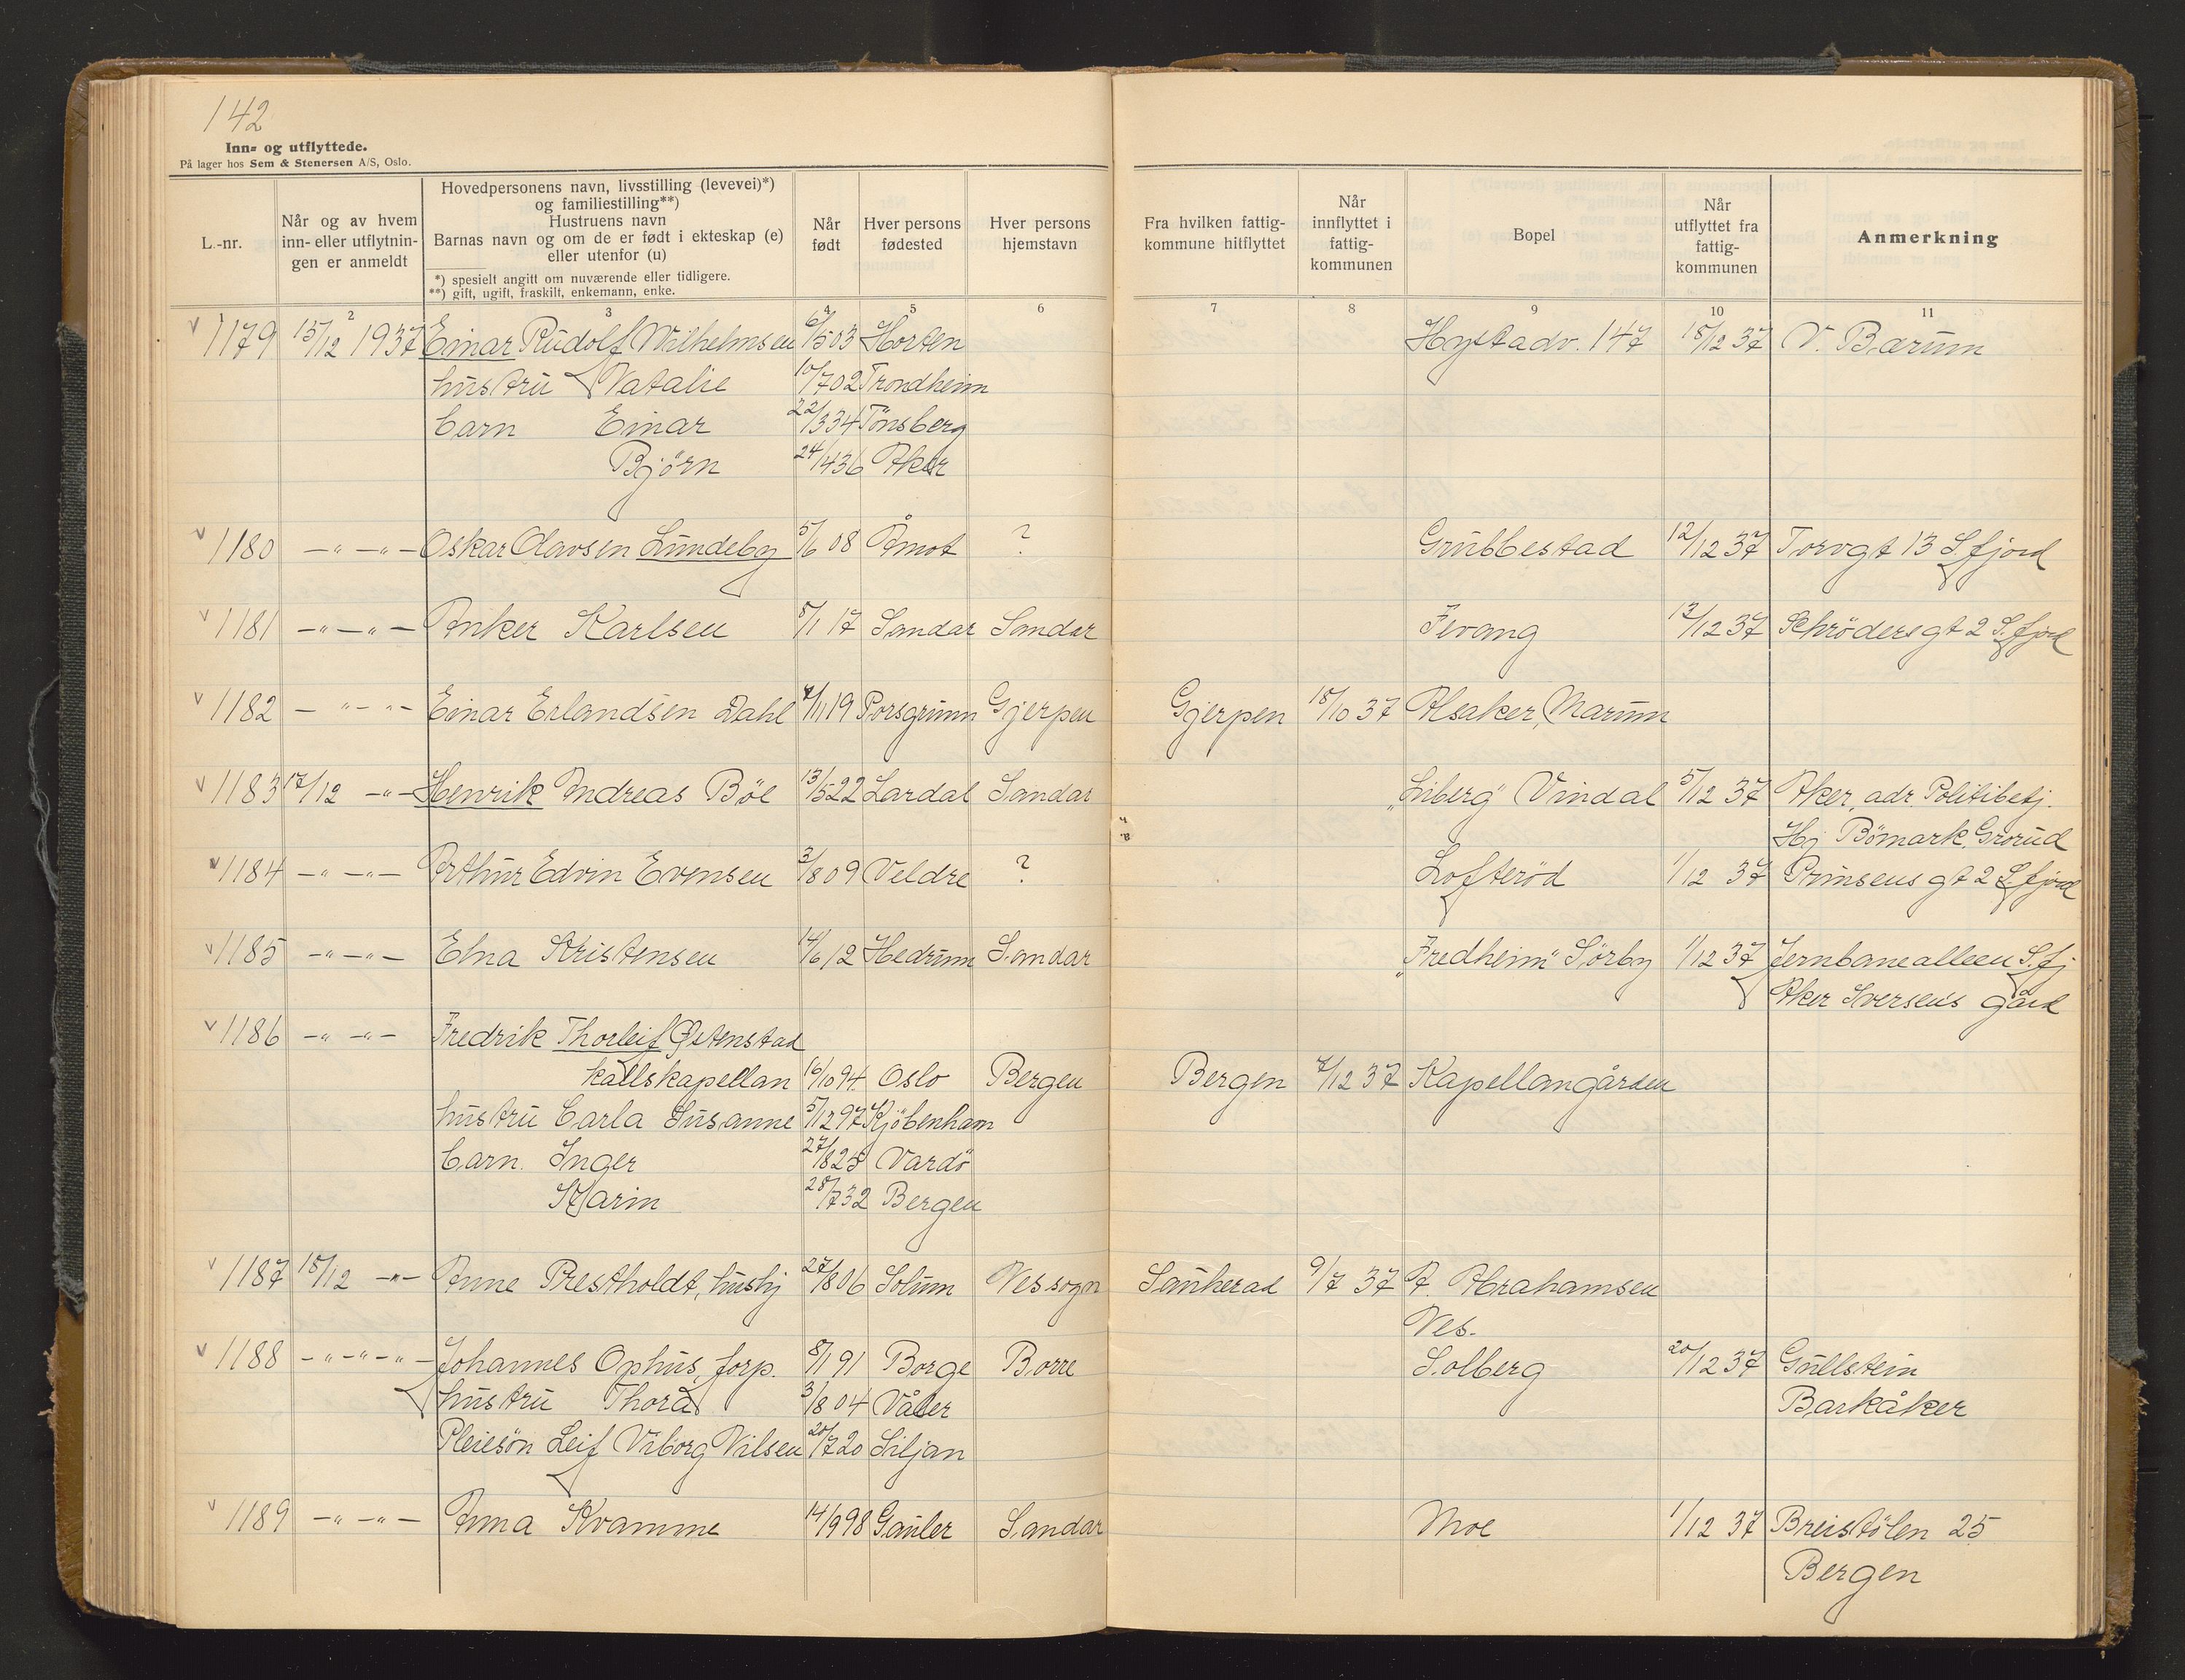 142
Inn- og utflyttede.
På lager hos Sem & Stenersen A/S, Oslo.
L.-nr.
Når og av hvem inn- eller utflytnin-gen er anmeldt
Hovedpersonens navn, livsstilling (levevei)*)
og familiestilling**)
Hustruens navn
Barnas navn og om de er født i ekteskap (e)
eller utenfor (u)
*) spesielt angitt om nuværende eller tidligere.
**) gift, ugift, fraskilt, enkemann, enke.
Når født
Hver persons fødested
Hver persons hjemstavn
Fra hvilken fattig-kommune hitflyttet
Når innflyttet i fattig-kommunen
Bopel
Når utflyttet fra fattig-kommunen
Anmerkning
2 3 4 5 6 7 8 9 10 11
v 1179 15/12 1937 Einar Rudolf Wilhelmsen 6/5 03 Horten Hystadv. 147 15/12 37 V. Bærum
hustru Natalie 10/7 02 Trondheim
barn Einar 22/3 34 Tønsberg
Björn 24/4 36 Aker
v 1180 -"-"- Oskar Olavsen Lundeby 5/6 08 Åmot ? Grubbestad 12/12 37 Torvgt 13 S.fjord
v 1181 -"-"- Anker Karlsen 8/1 17 Sandar Sandar Fevang 13/12 37 Schrödersgt 2 S.fjord
v 1182 -"-"- Einar Erlandsen Dahl 4/11 19 Porsgrunn Gjerpen Gjerpen 15/10 37 Alsaker, Marum
v 1183 17/12 -"- Henrik Andreas Böe 13/5 22 Lardal Sandar „Liberg" Vindal 5/12 37 Aker, adr. Politibetj.
Hj Bömark, Grorud
v 1184 -"-"- Arthur Edvin Evensen 3/8 09 Veldre ? Lofteröd 1/12 37 Prinsens gt 2 S.fjord
v 1185 -"-"- Elna Kristensen 14/6 12 Hedrum Sandar „Fredheim" Sörby 1/12 37 Jernbanealleen S.fj
Aker Iversens gård
v 1186 -"-"- Fredrik Thorleif Østenstad
kallskapellan 16/10 94 Oslo Bergen Bergen 7/12 37 Kapellangården
hustru Carla Susanne 5/12 97 Kjöbenhavn
barn. Inger 27/8 25 Vardö
Karin 28/7 32 Bergen
v 1187 18/12 -"- Anne Prestholdt, hushj 27/8 06 Solum Nessogn Sauherad 9/7 37 A. Abrahamsen
Nes.
v 1188 -"-"-"- Johannes Ophus, forp. 8/1 91 Borge Borre Solberg 20/12 37 Gullstein
hustru Thora 3/8 04 Våler Barkåker
Pleiesön Leif Viborg Nilsen 20/7 20 Siljan
v 1189 -"-"- Anna Kvamme 14/9 98 Gauler Sandar Moe 1/12 37 Breistölen 25
Bergen